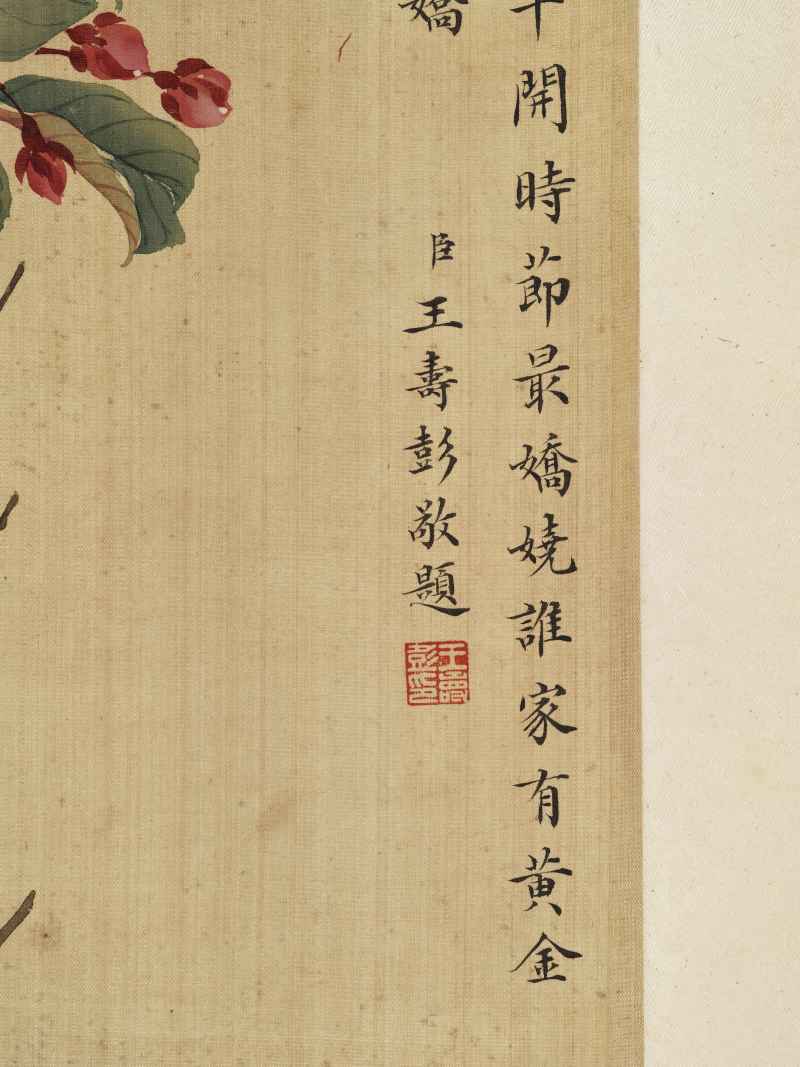 開時莭最嬌嬈誰家有黄金
嬌
臣王壽彭敬題
王壽彭印